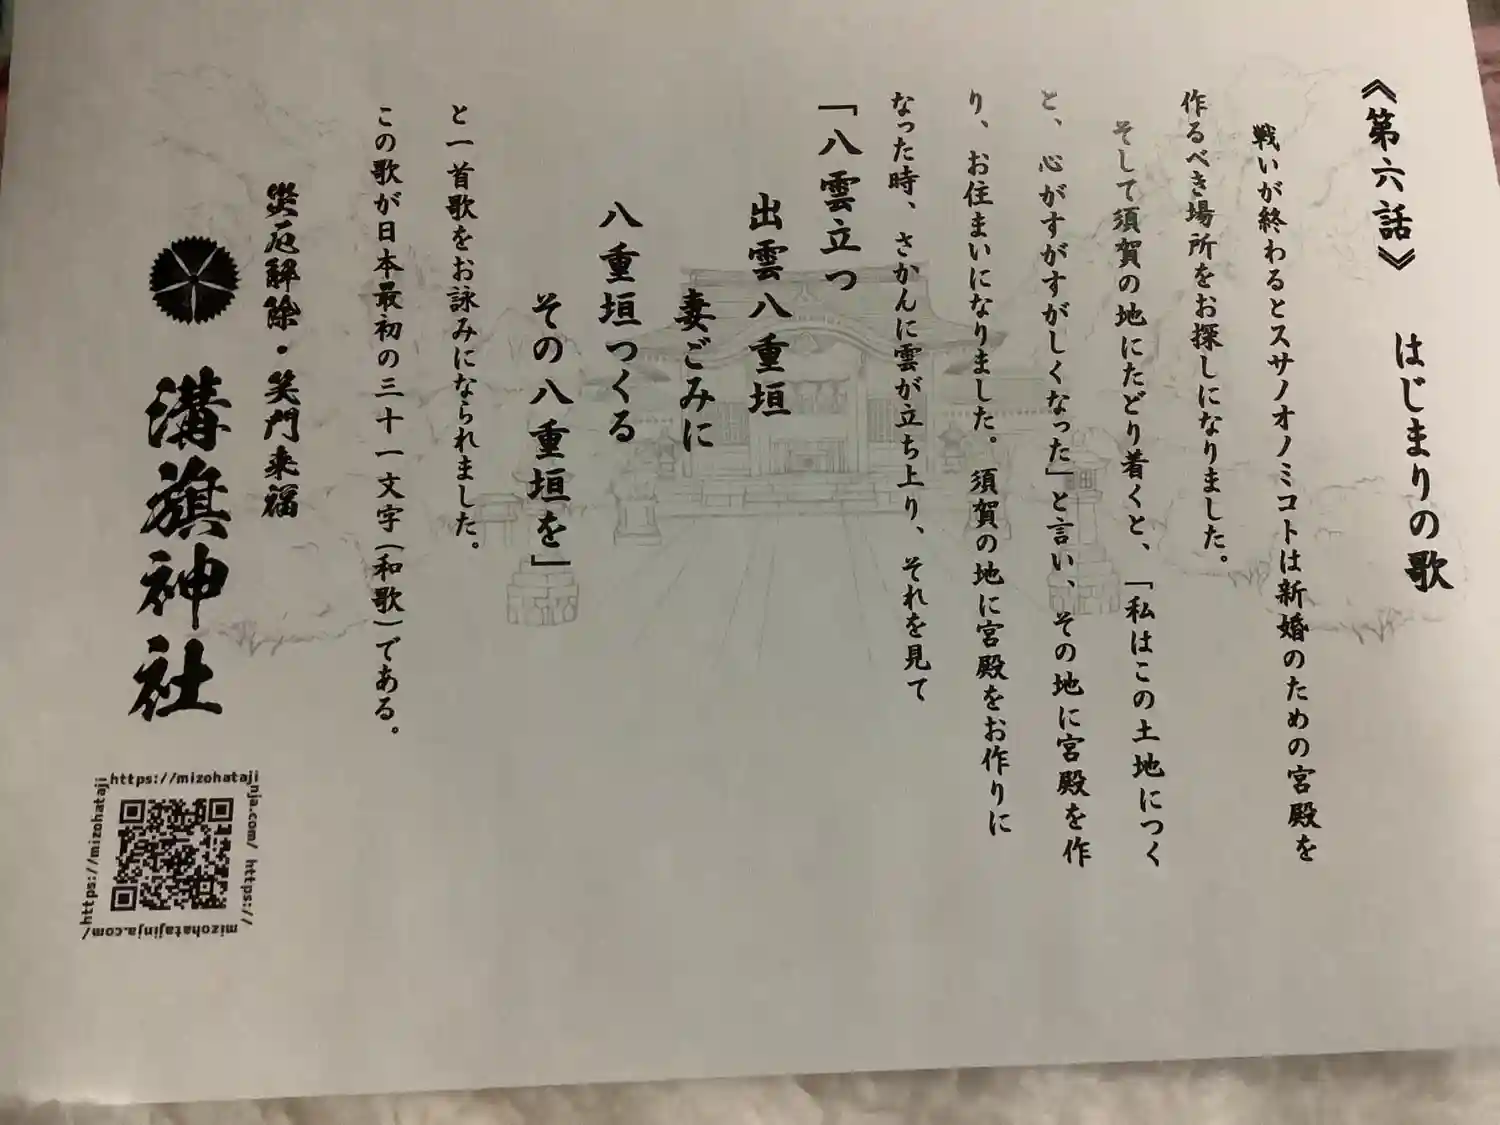 《第六話》 はじまりの歌
戦いが終わるとスサノオノミコトは新婚のための宮殿を
作るべき場所をお探しになりました。
そして須賀の地にたどり着くと、「私はこの土地につく
と、心がすがすがしくなった」と言い、その地に宮殿を作
り、お住まいになりました。須賀の地に宮殿をお作りに
なった時、さかんに雲が立ち上り、それを見て
「八雲立つ
出雲八重垣
妻ごみに
八重垣つくる
その八重垣を」
と一首歌をお詠みになられました。
この歌が日本最初の三十一文字(和歌)である。
災厄解除・笑門来福
溝旗神社
https://mizohatajinja.com/ https://mizohatajinja.com/ https://mizohataji